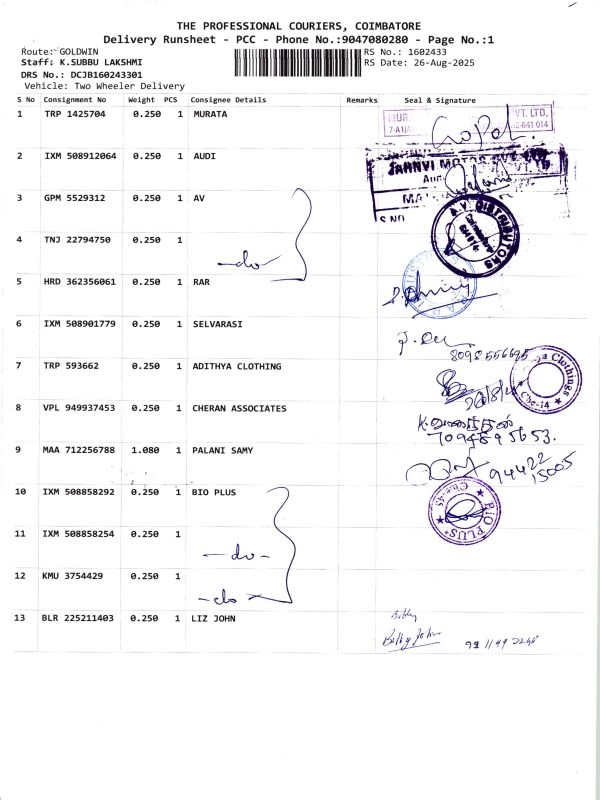 THE PROFESSIONAL COURIERS, COIMBATORE
Delivery Runsheet - PCC - Phone No.:9047080280 - Page No.:1
Route: GOLDWIN RS No.: 1602433
Staff: K.SUBBU LAKSHMI RS Date: 26-Aug-2025
DRS No.: DCJB160243301
Vehicle: Two Wheeler Delivery
S No Consignment No Weight PCS Consignee Details Remarks Seal & Signature
1 TRP 1425704 0.250 1 MURATA MUR VT. LTD,
7-A1/A 641 014
Gopal.
2 IXM 508912064 0.250 1 AUDI JAHNVI MOTOR PVT. LTD.
3 GPM 5529312 0.250 1 AV S.NO A.V. DISTRIBUTORS
Coimbatore
641014
4 TNJ 22794750 0.250 1 -do-
5 HRD 362356061 0.250 1 RAR
6 IXM 508901779 0.250 1 SELVARASI
8098556695
7 TRP 593662 0.250 1 ADITHYA CLOTHING ya Clothings
Cbe-14
26/8/25
8 VPL 949937453 0.250 1 CHERAN ASSOCIATES
7094895653.
9 MAA 712256788 1.080 1 PALANI SAMY 94422
15005
10 IXM 508858292 0.250 1 BIO PLUS BIO PLUS
Cbe-45
11 IXM 508858254 0.250 1 -do-
12 KMU 3754429 0.250 1 -do-
13 BLR 225211403 0.250 1 LIZ JOHN Bobby
Bobby John